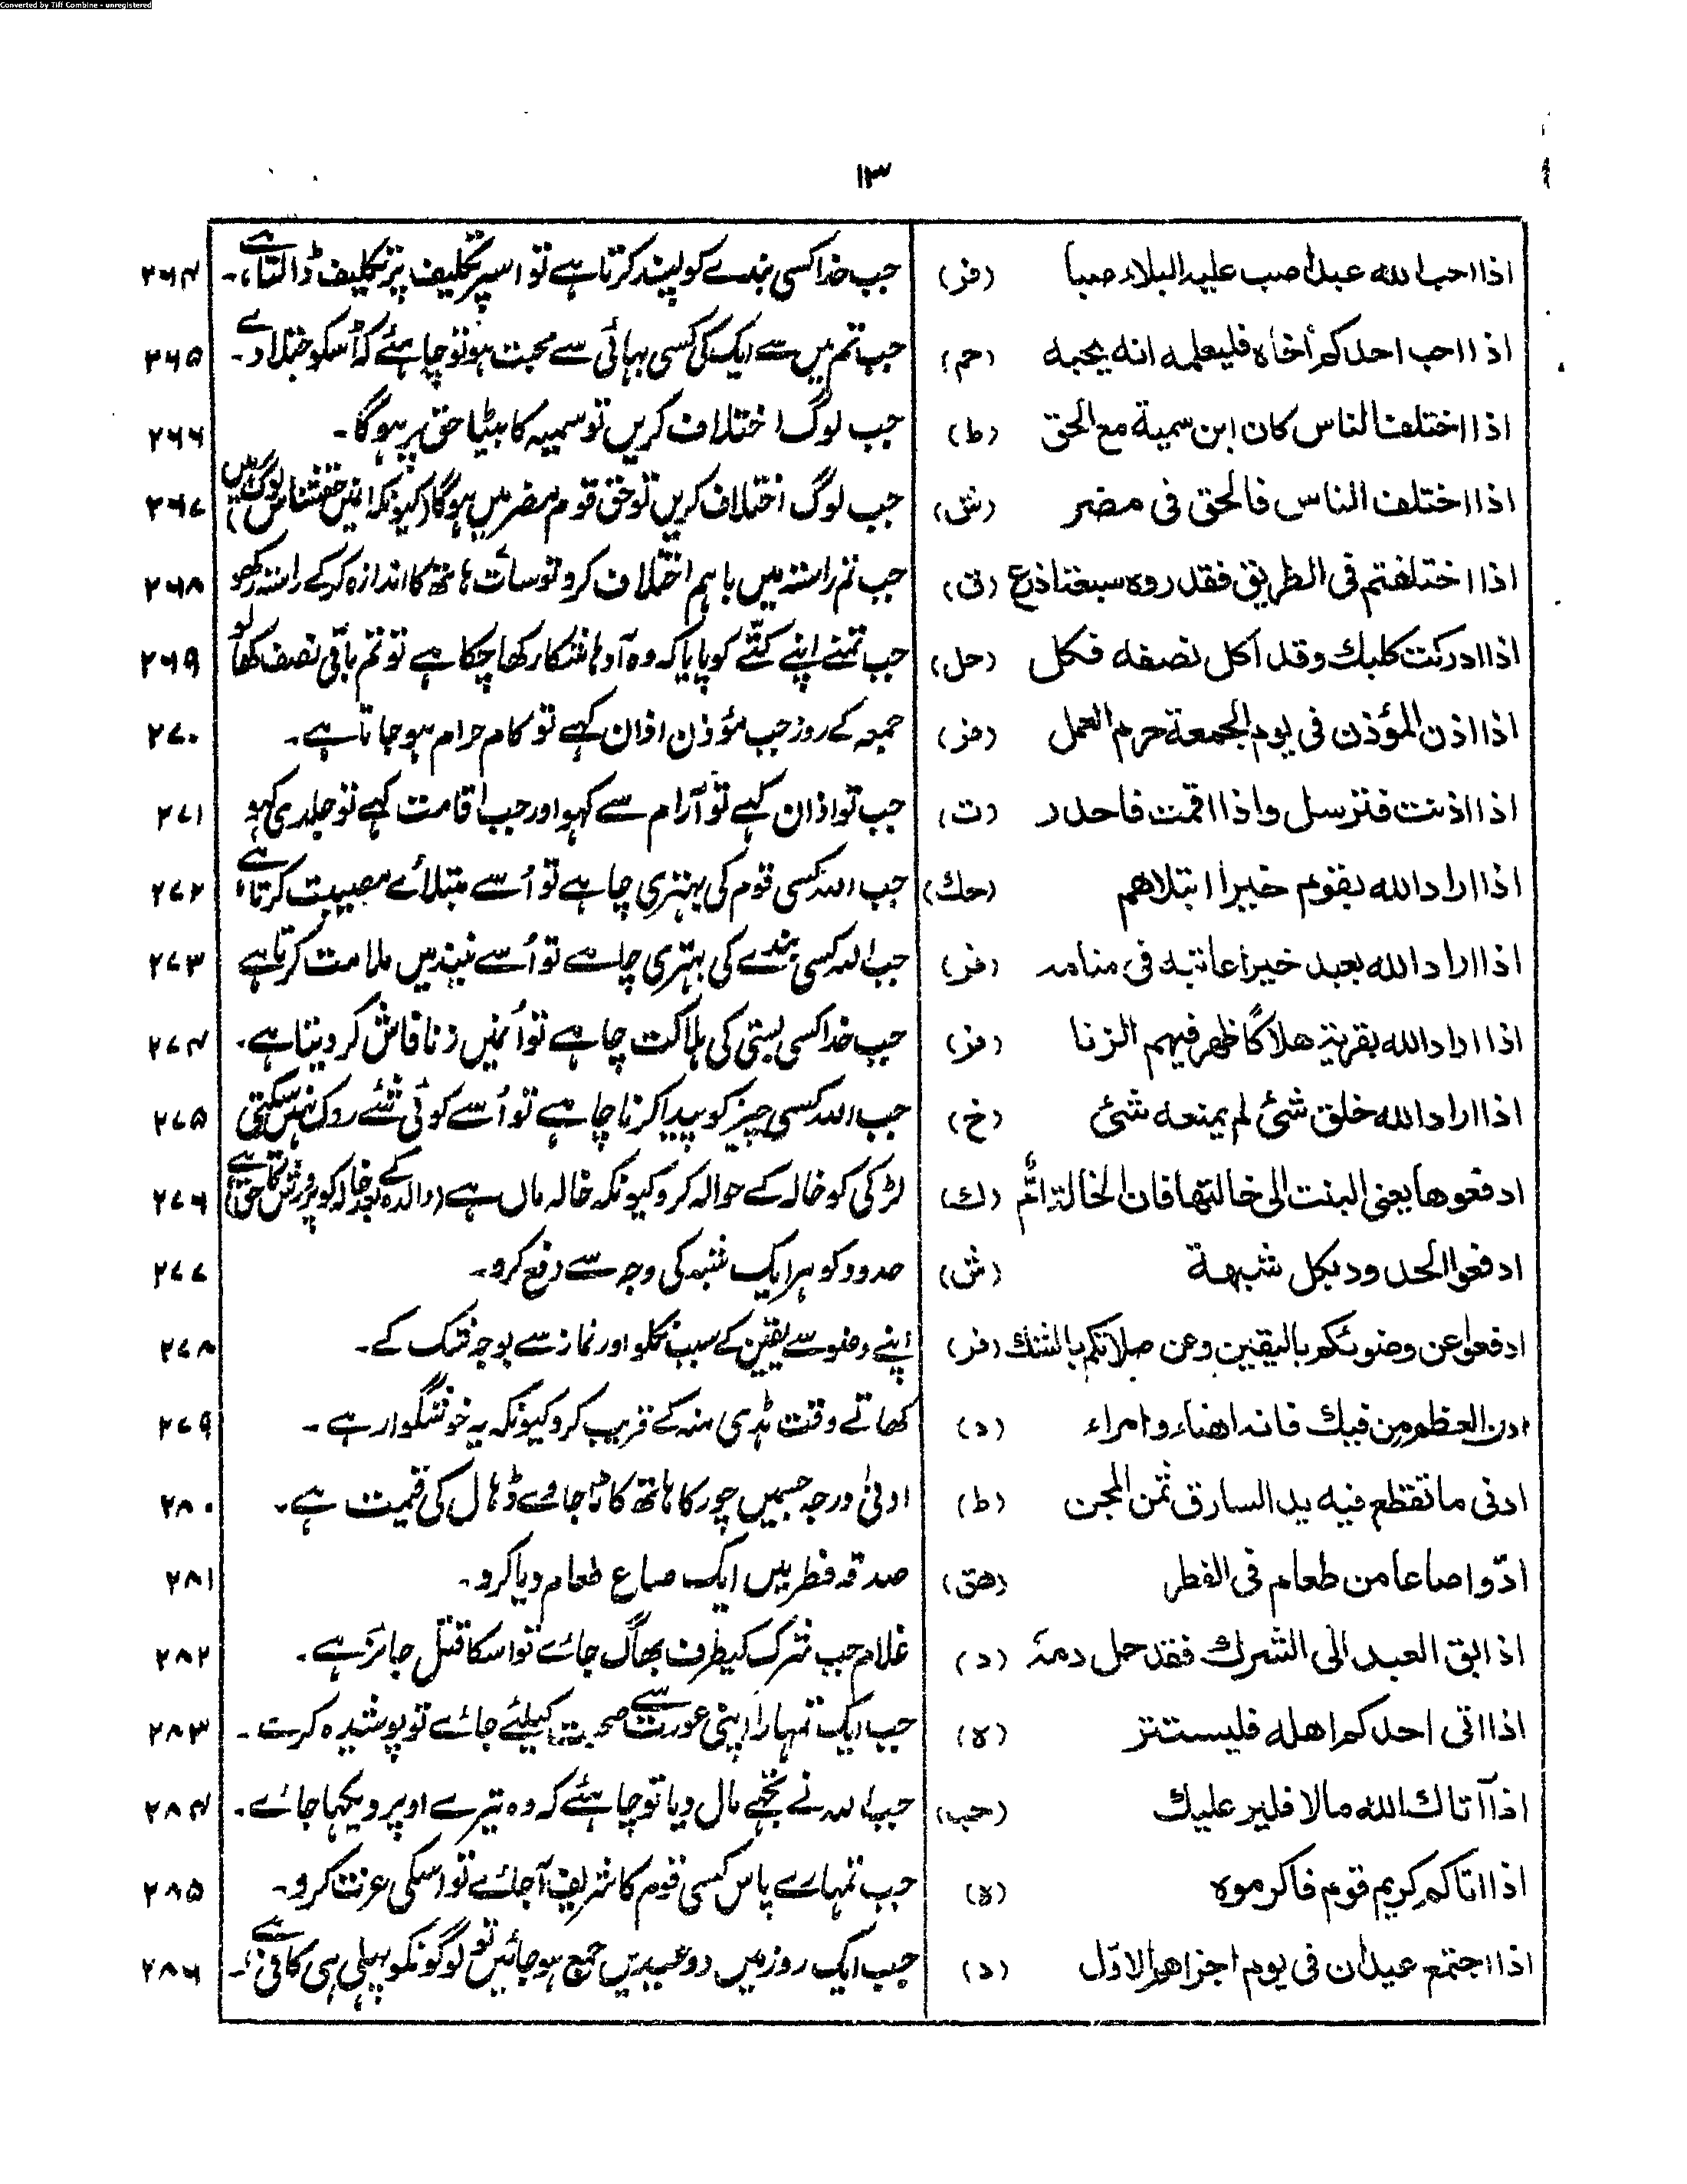 Converted by Tiff Combine - unregistered
١٣
اذا احب الله عبدا صب عليه البلاء صبا (فر) جب خدا کسی بندے کو پسند کرتا ہے تو اسپر تکلیف پر تکلیف ڈالتا ہے۔ ۲۶۴
اذا احب احدكم أخاه فليعلمه انه يحبه (حم) جب تم میں سے ایک کی کسی بہائی سے محبت ہو تو چاہئے کہ اُسکو جتلادے۔ ۲۶۵
اذا اختلف الناس كان ابن سمية مع الحق (ط) جب لوگ اختلاف کریں تو سمیہ کا بیٹا حق پر ہوگا۔ ۲۶۶
اذا اختلف الناس فالحق فى مضر (ش) جب لوگ اختلاف کریں تو حق قوم مضر میں ہوگا (کیونکہ انمیں حق شناس لوگ ہیں) ۲۶۷
اذا اختلفتم فى الطريق فقدروه سبعة اذرع (ق) جب تم راستہ میں باہم اختلاف کرو تو سات ہاتھ کا اندازہ کرکے راستہ رکھو ۲۶۸
اذا ادركت كلبك وقد اكل نصفه فكل (حل) جب تمنے اپنے کتّے کو پایا کہ وہ آدہا شکار کھا چکا ہے تو تم باقی نصف کھا لو ۲۶۹
اذا اذن المؤذن فى يوم الجمعة حرم العمل (فر) جمعہ کے روز جب مؤذن اذان کہے تو کام حرام ہو جاتا ہے۔ ۲۷۰
اذا اذنت فترسل واذا اقمت فاحدر (ت) جب تو اذان کہے تو آرام سے کہو اور جب اقامت کہے تو جلدی کہو ۲۷۱
اذا اراد الله بقوم خيرا ابتلاهم (حك) جب اللہ کسی قوم کی بہتری چاہے تو اُسے مبتلائے مصیبت کرتا ہے ۲۷۲
اذا اراد الله بعبد خيرا عاتبه فى منامه (فر) جب اللہ کسی بندے کی بہتری چاہے تو اُسے نیند میں ملامت کرتا ہے ۲۷۳
اذا اراد الله بقرية هلاكًا ظهر فيهم الزنا (فر) جب خدا کسی بستی کی ہلاکت چاہے تو اُنمیں زنا فاش کر دیتا ہے۔ ۲۷۴
اذا اراد الله خلق شئ لم يمنعه شئ (خ) جب اللہ کسی چیز کو پیدا کرنا چاہے تو اُسے کوئی شئے روک نہیں سکتی ۲۷۵
ادفعوها يعنى البنت الى خالتها فان الخالة اُمّ (ك) لڑکی کو خالہ کے حوالہ کرو کیونکہ خالہ ماں ہے (والدہ کے بعد خالہ کو پرورش کا حق ہے) ۲۷۶
ادفعوا الحدود بكل شبهة (ش) حدود کو ہر ایک شبہ کی وجہ سے دفع کرو۔ ۲۷۷
ادفعوا عن وضوئكم باليقين وعن صلاتكم بالشك (فر) اپنے وضو سے یقین کے سبب نکلو اور نماز سے بوجہ شک کے۔ ۲۷۸
ادن العظم من فيك فانه اهناء وامراء (د) کھاتے وقت ہڈی منہ کے قریب کرو کیونکہ یہ خوشگوار ہے۔ ۲۷۹
ادنى ما تقطع فيه يد السارق ثمن المجن (ط) ادنیٰ درجہ جسمیں چور کا ہاتھ کاٹا جاوے ڈہال کی قیمت ہے۔ ۲۸۰
ادّوا صاعا من طعام فى الفطر (هق) صدقہ فطر میں ایک صاع طعام دیا کرو۔ ۲۸۱
اذا ابق العبد الى الشرك فقد حل دمه (د) غلام جب شرک کیطرف بھاگ جائے تو اسکا قتل جائز ہے۔ ۲۸۲
اذا اتى احدكم اهله فليستتر (ہ) جب ایک تمہارا اپنی عورت سے صحبت کیلئے جائے تو پوشیدہ کرے۔ ۲۸۳
اذا آتاك الله مالا فلير عليك (حب) جب اللہ نے تجھے مال دیا تو چاہئے کہ وہ تیرے اوپر دیکھا جائے۔ ۲۸۴
اذا اتاكم كريم قوم فاكرموه (ہ) جب تمہارے پاس کسی قوم کا شریف آجائے تو اسکی عزت کرو۔ ۲۸۵
اذا اجتمع عيدان فى يوم اجزاهم الاوّل (د) جب ایک روز میں دو عیدیں جمع ہو جائیں تو لوگونکو پہلی ہی کافی ہے۔ ۲۸۶